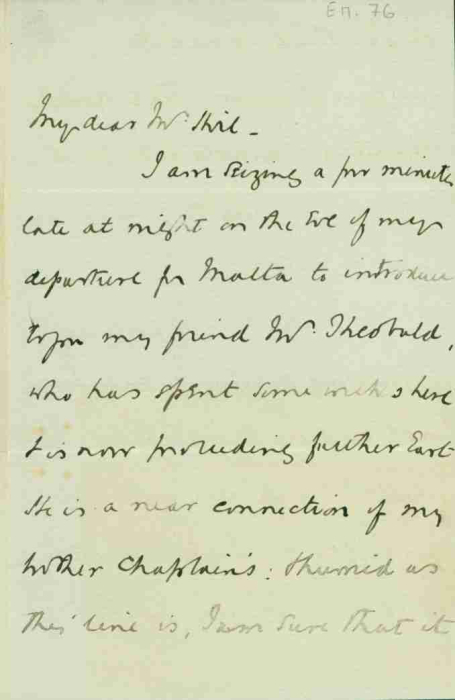 En. 76
My dear Mr. Hill _
I am seizing a few minutes
late at night on the Eve of my
departure for Malta to introduce
to you my friend Mr. Theobald,
who has spent some weeks here
& is now proceeding further East
He is a near connection of my
brother Chaplain's: Hurried as
this line is, I am sure that it